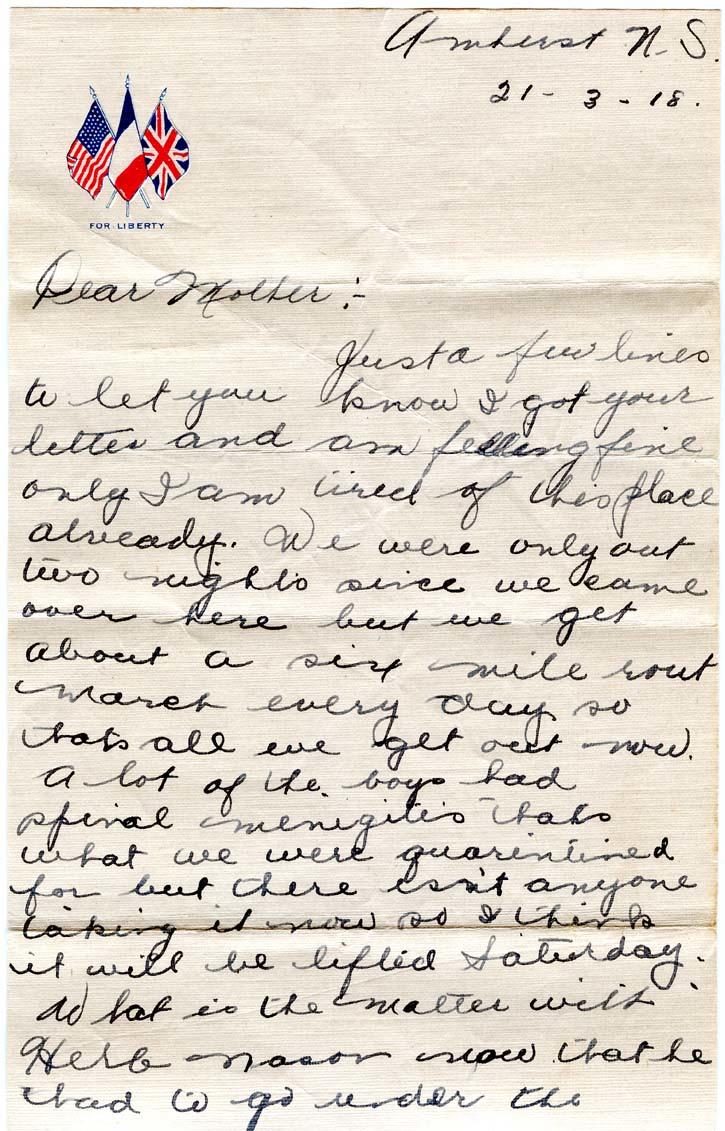 Amherst N.S.
21-3-18.
FOR LIBERTY
Dear Mother:-
Just a few lines
to let you know I got your
letter and am feelling fine
only I am tired of this place
already. We were only out
two nights since we came
over here but we get
about a six mile rout
march every day so
thats all we get out now.
A lot of the boys had
spinal menigitis thats
what we were quarintined
for but there isn't anyone
taking it now so I think
it will be lifted Saturday.
What is the matter with
Herb nason now that he
had to go under the